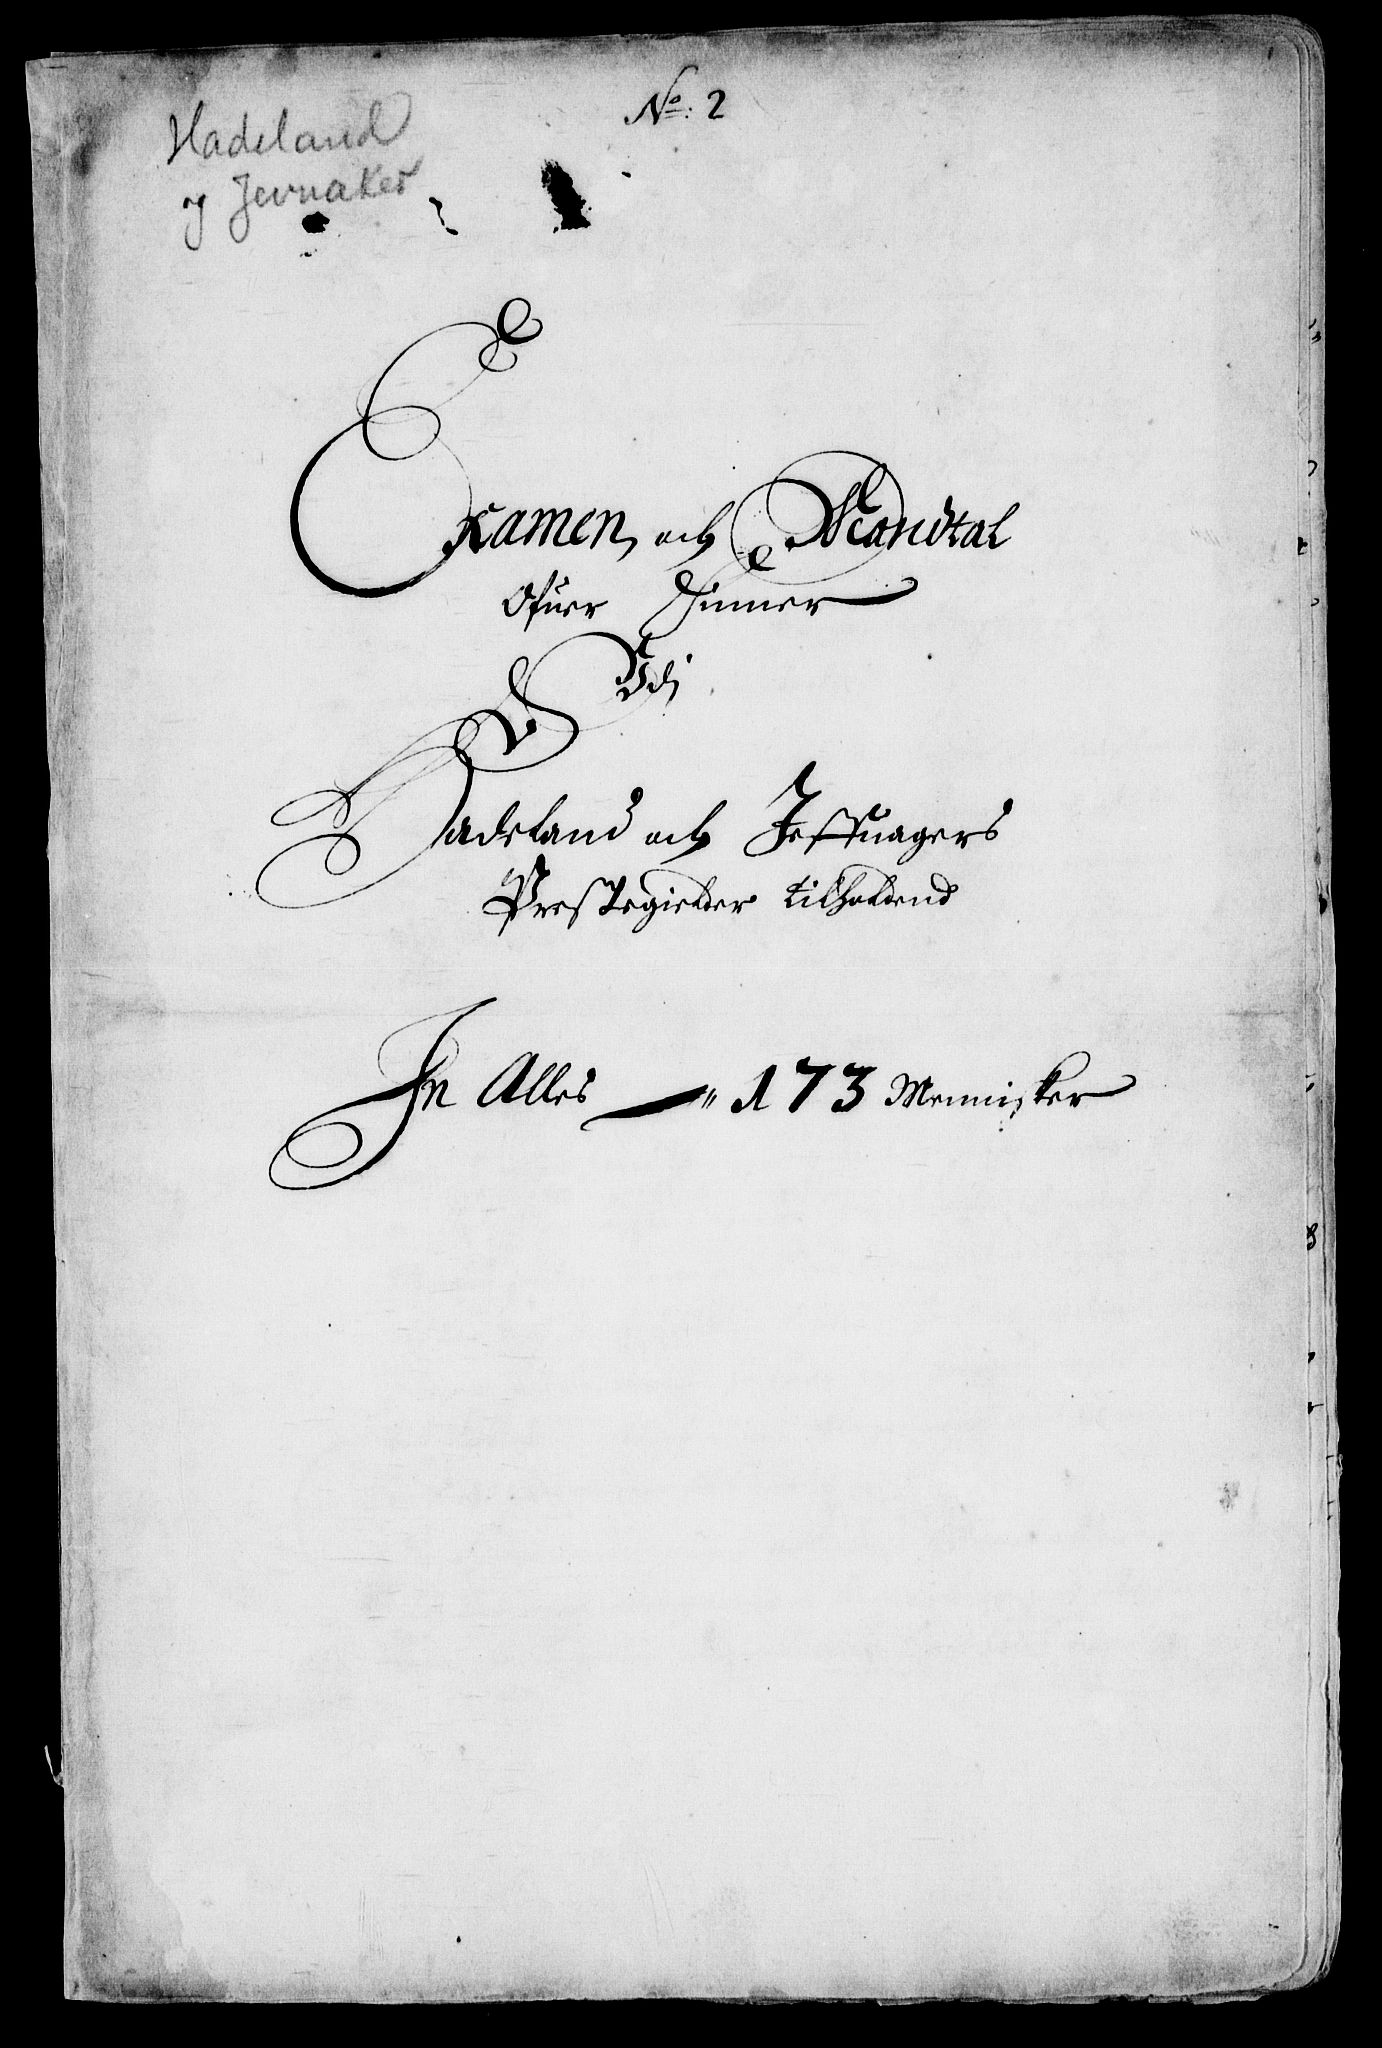 No: 2
Hadeland
og Jevnaker
Examen och Mandtal
Ofuer Finner
Udi
Hadeland och Jeffnagers
Prestegielder tilholdend
In Alles 173 Mennisker